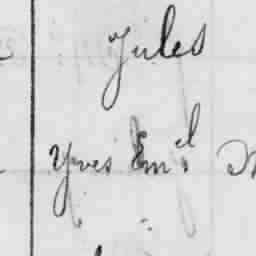 Jules
Yves Em.el